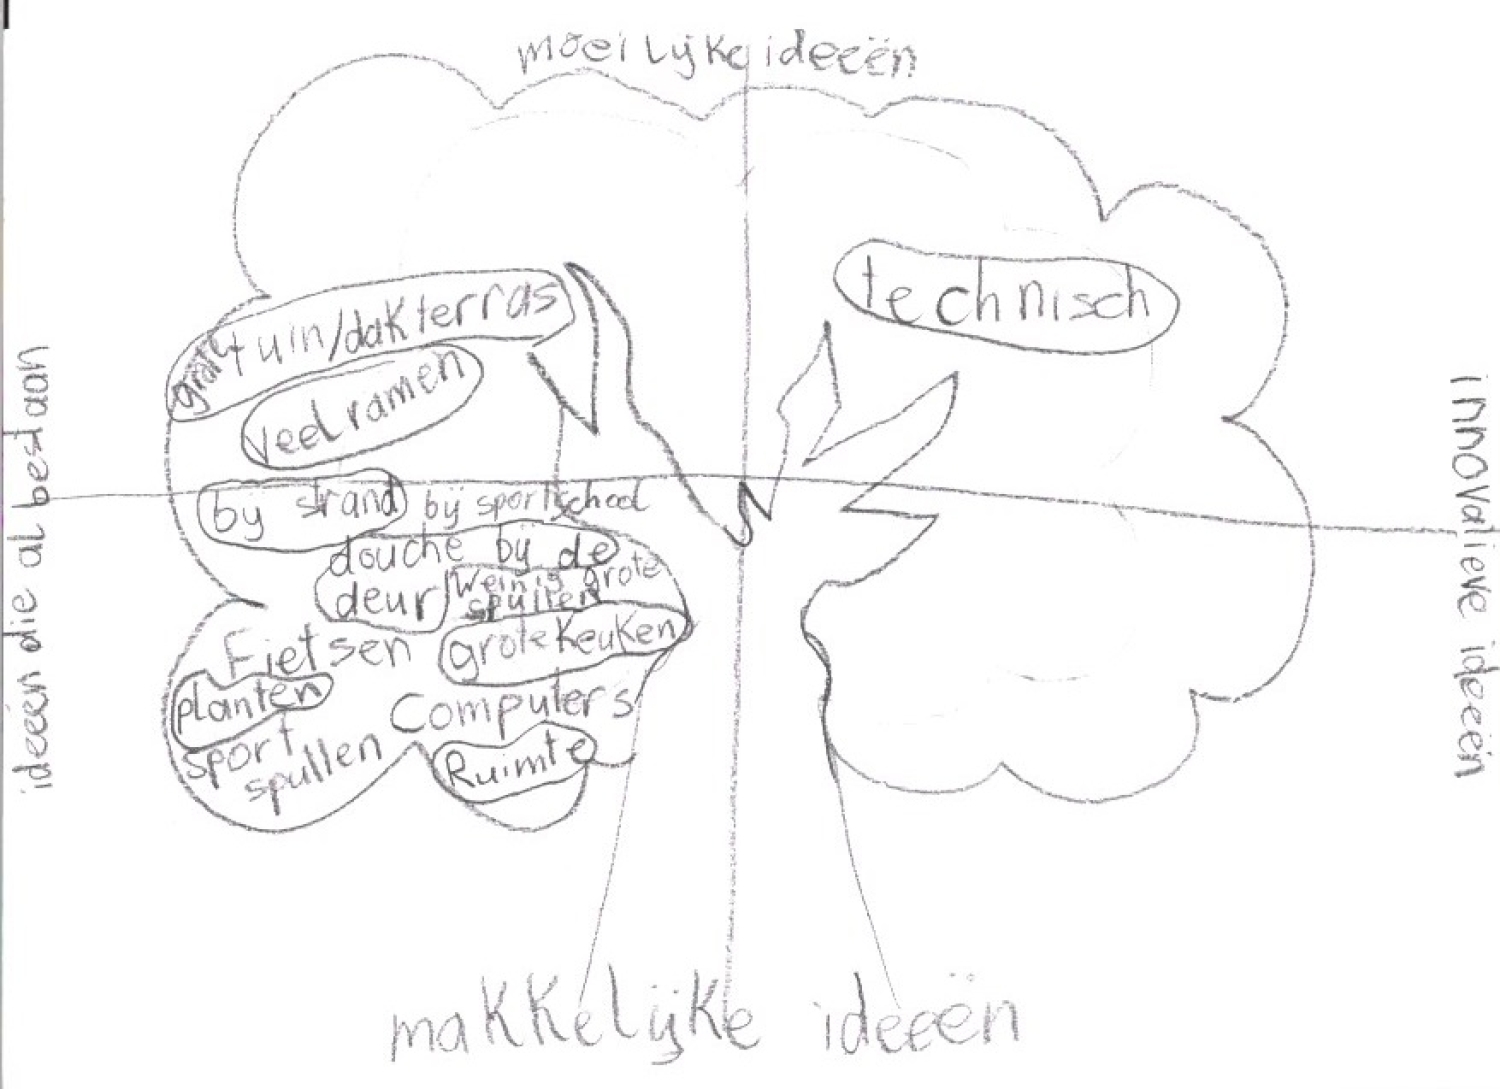 moeilijke ideeën
technisch
tuin/dakterras
veel ramen
bij strand
bij sportschool
douche bij de
deur
Weinig grote
spullen
Fietsen
grote keuken
planten
Computers
sport
spullen
Ruimte
ideeën die al bestaan
innovatieve ideeën
makkelijke ideeën